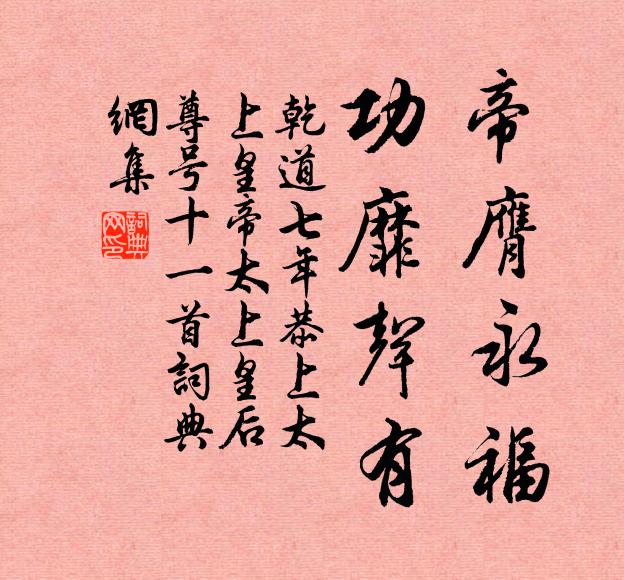 帝膺永福
功靡聲有
乾道七年恭上太
上皇帝太上皇后
尊号十一首詞典
網集
詞典網印